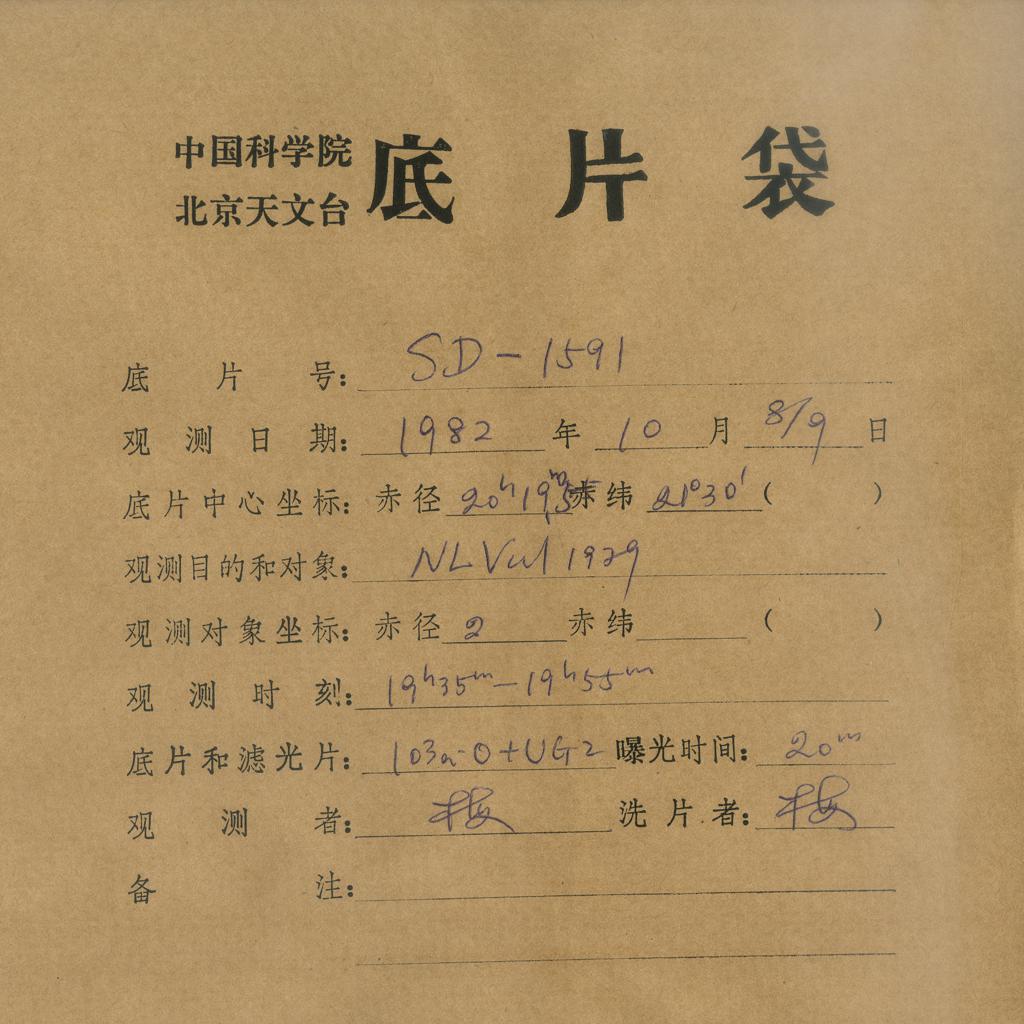 中国科学院
北京天文台
底片袋
底片号: SD-1591
观测日期: 1982年10月8/9日
底片中心坐标: 赤径 20ʰ19ᵐ.5 赤纬 21°30′ ( )
观测目的和对象: NLVul 1929
观测对象坐标: 赤径 2 赤纬 ( )
观测时刻: 19ʰ35ᵐ-19ʰ55ᵐ
底片和滤光片: 103a-O+UG2 曝光时间: 20ᵐ
观测者: 梅 洗片者: 梅
备注: